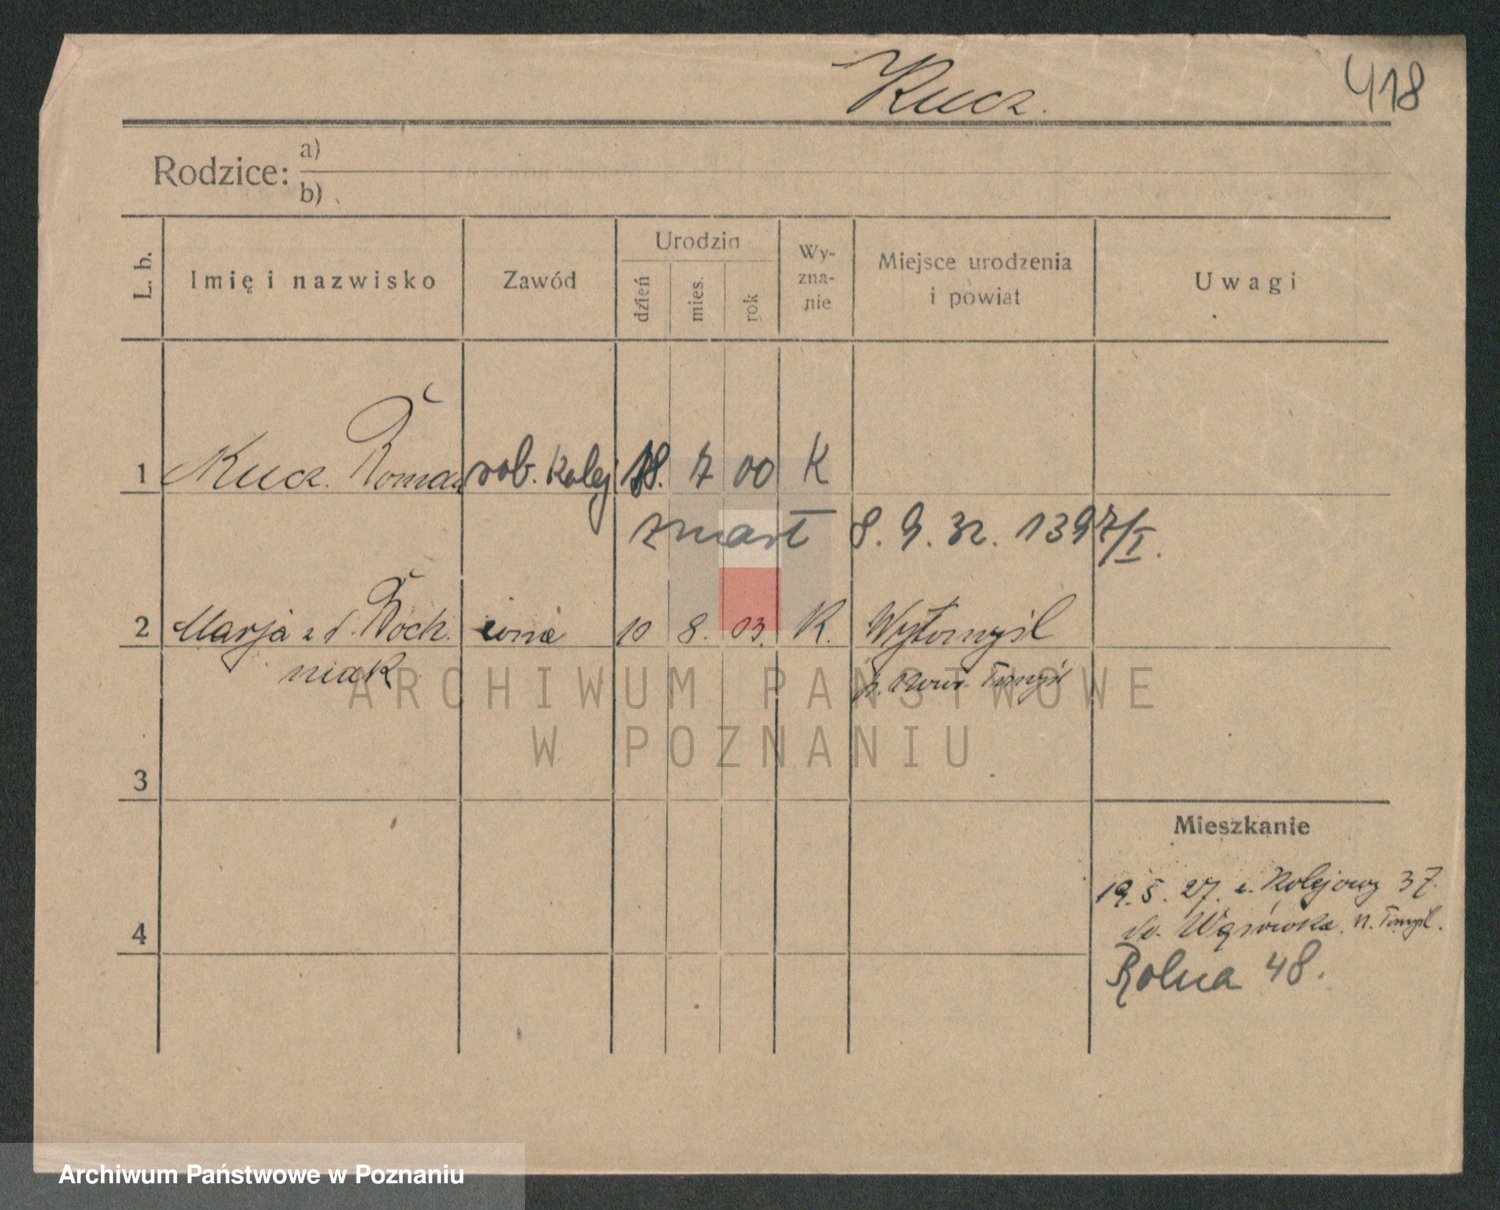 Kucz.
418
Rodzice: a)
b)
L. b.
Imię i nazwisko
Zawód
Urodzin
dzień
mies.
rok
Wy-
zna-
nie
Miejsce urodzenia
i powiat
Uwagi
1 Kucz Roman rob. kolej 18. 7 00 K
zmarł 8. 9. 32. 1397/I.
2 Marja z d. Woch żona 10 8. 03. K. Wytomyśl
niak p. Nowo Tomyśl
ARCHIWUM PAŃSTWOWE
W POZNANIU
3
Mieszkanie
19. 5. 27. Kolejowa 37.
Wąsówka. N. Tomyśl.
4
Rolna 48.
Archiwum Państwowe w Poznaniu